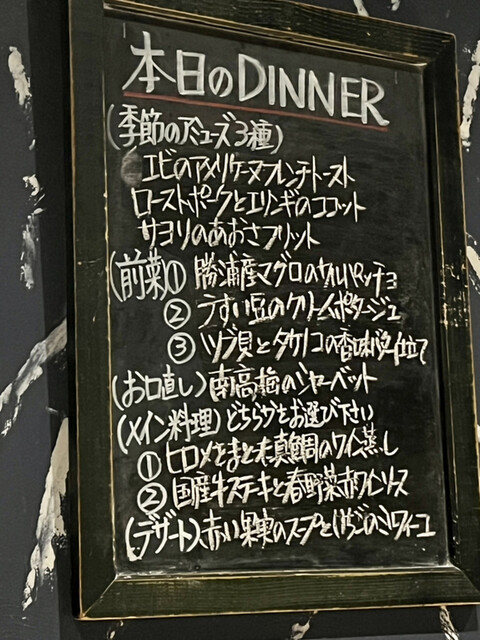 本日のDINNER
(季節のアミューズ3種)
エビのアメリケーヌフレンチトースト
ローストポークとエリンギのココット
サヨリのあおさフリット
(前菜)① 勝浦産マグロのカルパッチョ
② うすい豆のクリームポタージュ
③ ツブ貝とタケノコの香味バター仕立て
(お口直し)南高梅のシャーベット
(メイン料理)どちらかをお選び下さい
① ヒロメをまとった真鯛のワイン蒸し
② 国産牛ステーキと春野菜赤ワインソース
(デザート)赤い果実のスープといちごの